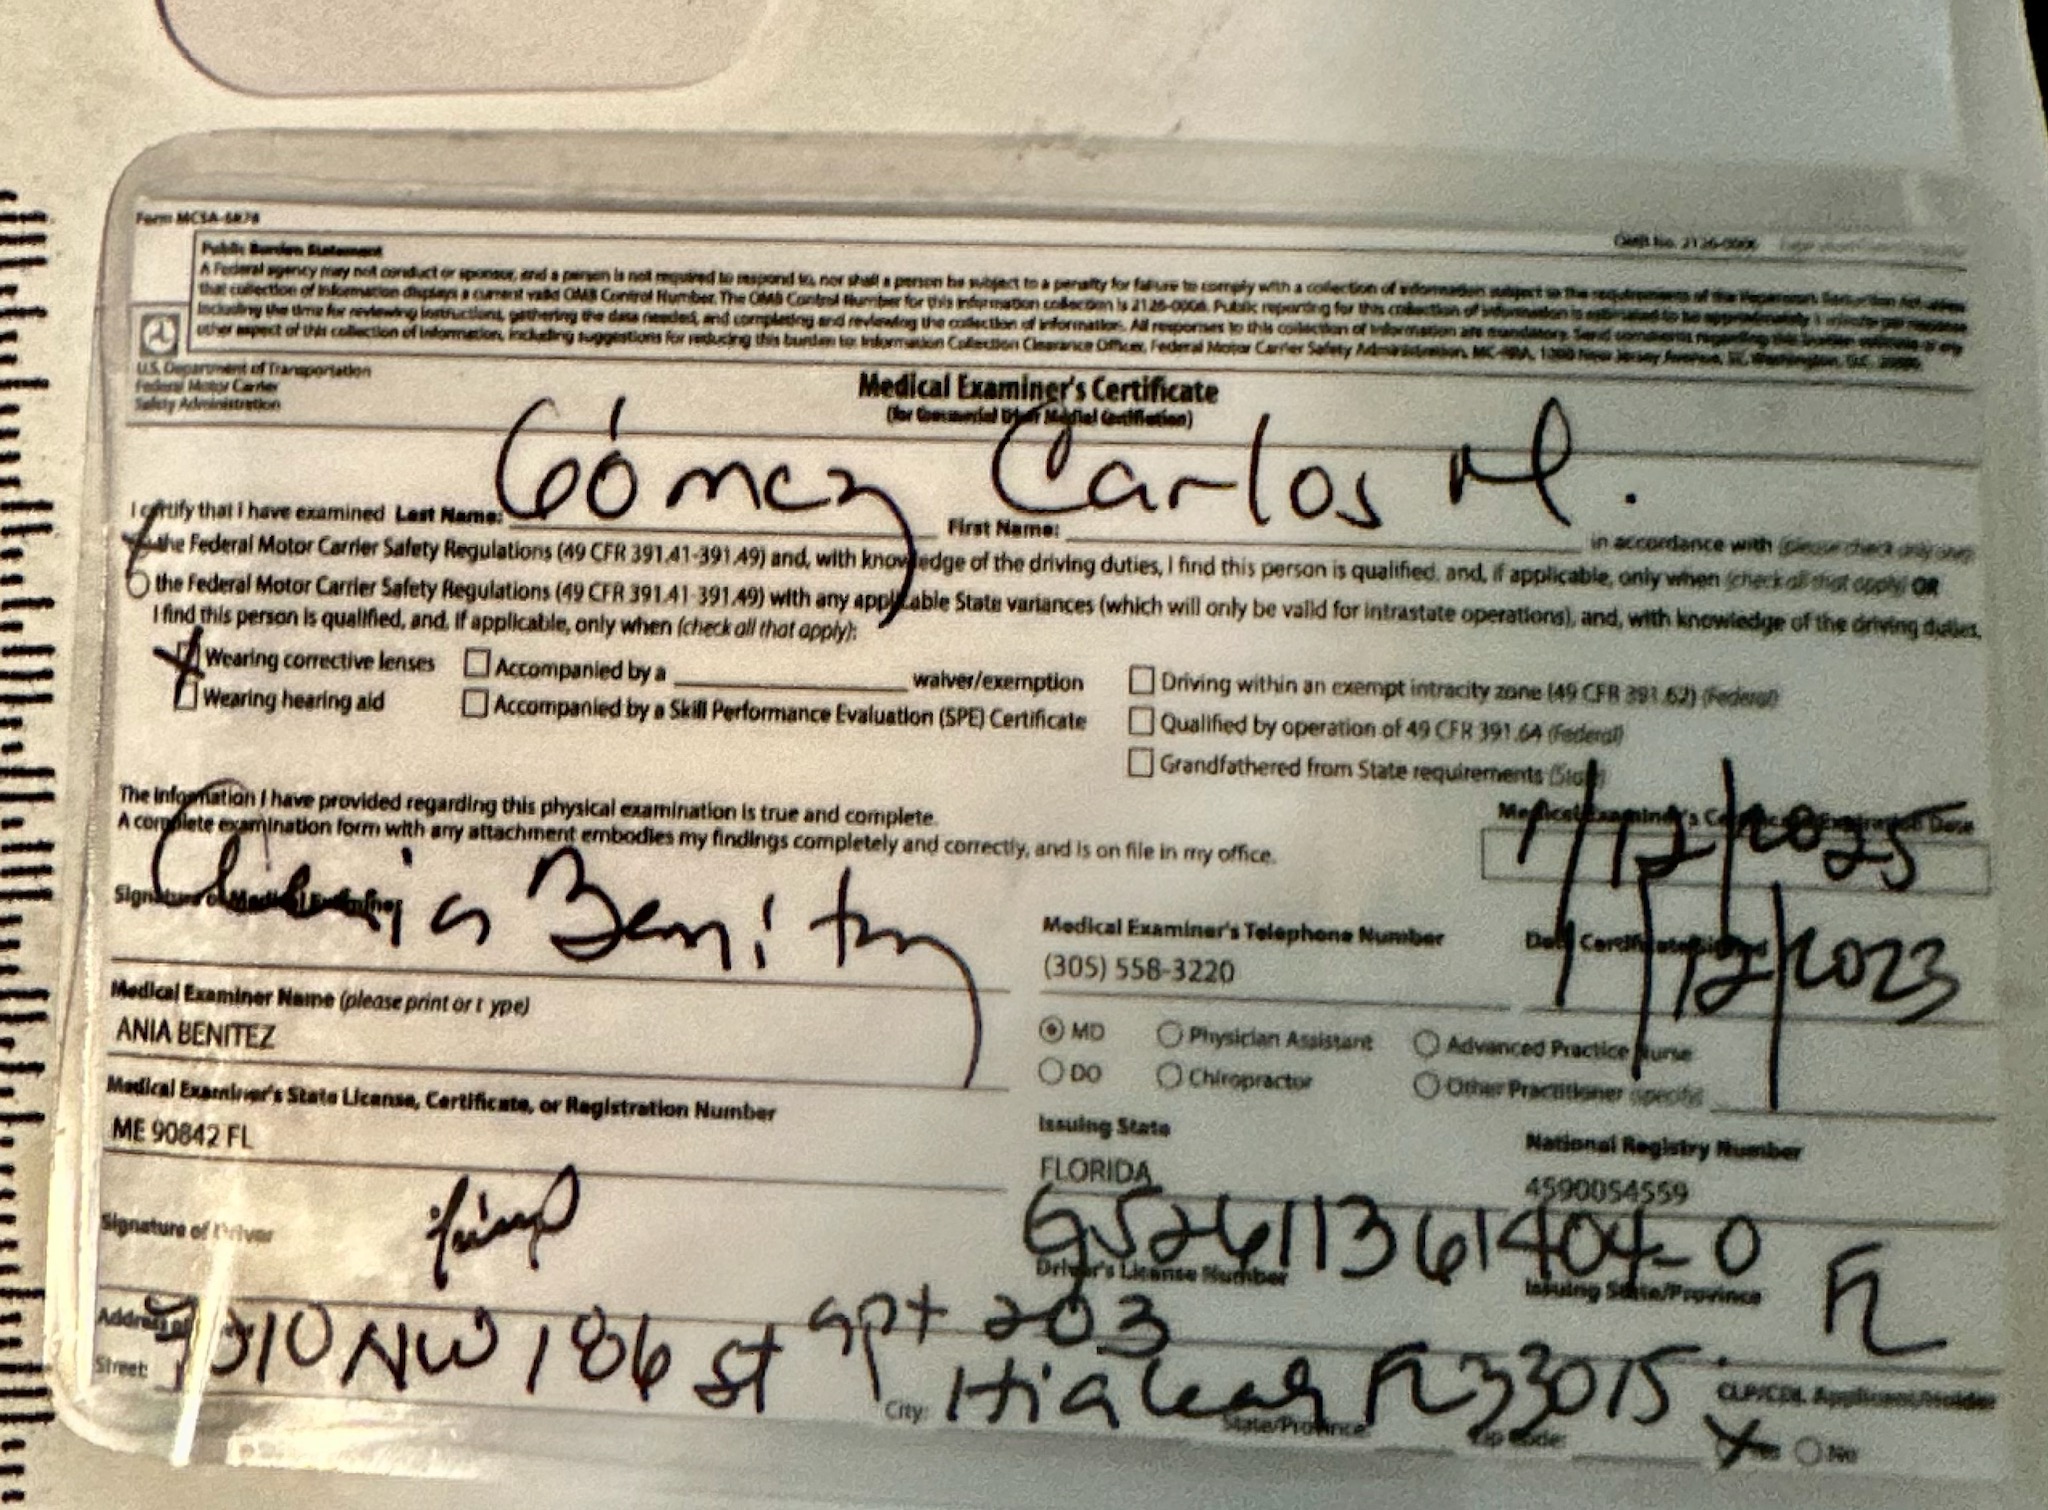 Form MCSA-5876
OMB No. 2126-0006
Public Burden Statement
A Federal agency may not conduct or sponsor, and a person is not required to respond to, nor shall a person be subject to a penalty for failure to comply with a collection of information subject to the requirements of the Paperwork Reduction Act unless
that collection of information displays a current valid OMB Control Number. The OMB Control Number for this information collection is 2126-0006. Public reporting for this collection of information is estimated to be approximately 1 minute per response
including the time for reviewing instructions, gathering the data needed, and completing and reviewing the collection of information. All responses to this collection of information are mandatory. Send comments regarding this burden estimate or any
other aspect of this collection of information, including suggestions for reducing this burden to: Information Collection Clearance Officer, Federal Motor Carrier Safety Administration, MC-RRA, 1200 New Jersey Avenue, SE, Washington, D.C. 20590.
U.S. Department of Transportation
Federal Motor Carrier
Safety Administration
Medical Examiner's Certificate
(for Commercial Driver Medical Certification)
I certify that I have examined Last Name: Gómez First Name: Carlos M. in accordance with (please check only one)
the Federal Motor Carrier Safety Regulations (49 CFR 391.41-391.49) and, with knowledge of the driving duties, I find this person is qualified, and, if applicable, only when (check all that apply) OR
the Federal Motor Carrier Safety Regulations (49 CFR 391.41-391.49) with any applicable State variances (which will only be valid for intrastate operations), and, with knowledge of the driving duties,
I find this person is qualified, and, if applicable, only when (check all that apply):
Wearing corrective lenses Accompanied by a waiver/exemption Driving within an exempt intracity zone (49 CFR 391.62) (Federal)
Wearing hearing aid Accompanied by a Skill Performance Evaluation (SPE) Certificate Qualified by operation of 49 CFR 391.64 (Federal)
Grandfathered from State requirements (State)
The information I have provided regarding this physical examination is true and complete.
A complete examination form with any attachment embodies my findings completely and correctly, and is on file in my office.
Medical Examiner's Certificate Expiration Date
1/12/2025
Signature of Medical Examiner
Ania Benitez
Medical Examiner's Telephone Number
(305) 558-3220
Date Certificate Signed
1/12/2023
Medical Examiner Name (please print or t ype)
ANIA BENITEZ
MD Physician Assistant Advanced Practice Nurse
DO Chiropractor Other Practitioner (specify)
Medical Examiner's State License, Certificate, or Registration Number
ME 90842 FL
Issuing State
FLORIDA
National Registry Number
4590054559
Signature of Driver
G52611361404-0
Driver's License Number
Issuing State/Province
FL
Address of
Street: 7010 NW 186 St apt 203
City: Hialeah FL 33015
State/Province: Zip Code:
CLP/CDL Applicant/Holder
Yes No